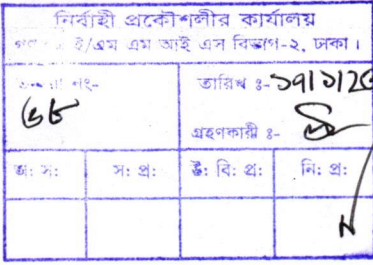 নির্বাহী প্রকৌশলীর কার্যালয়
ই/এম এম আই এস বিভাগ-২, ঢাকা।
নং- তারিখ ঃ- ১৭/১/২৫
৬৮
গ্রহণকারী ঃ-
স: স: প্র: উ: বি: প্র: নি: প্র: